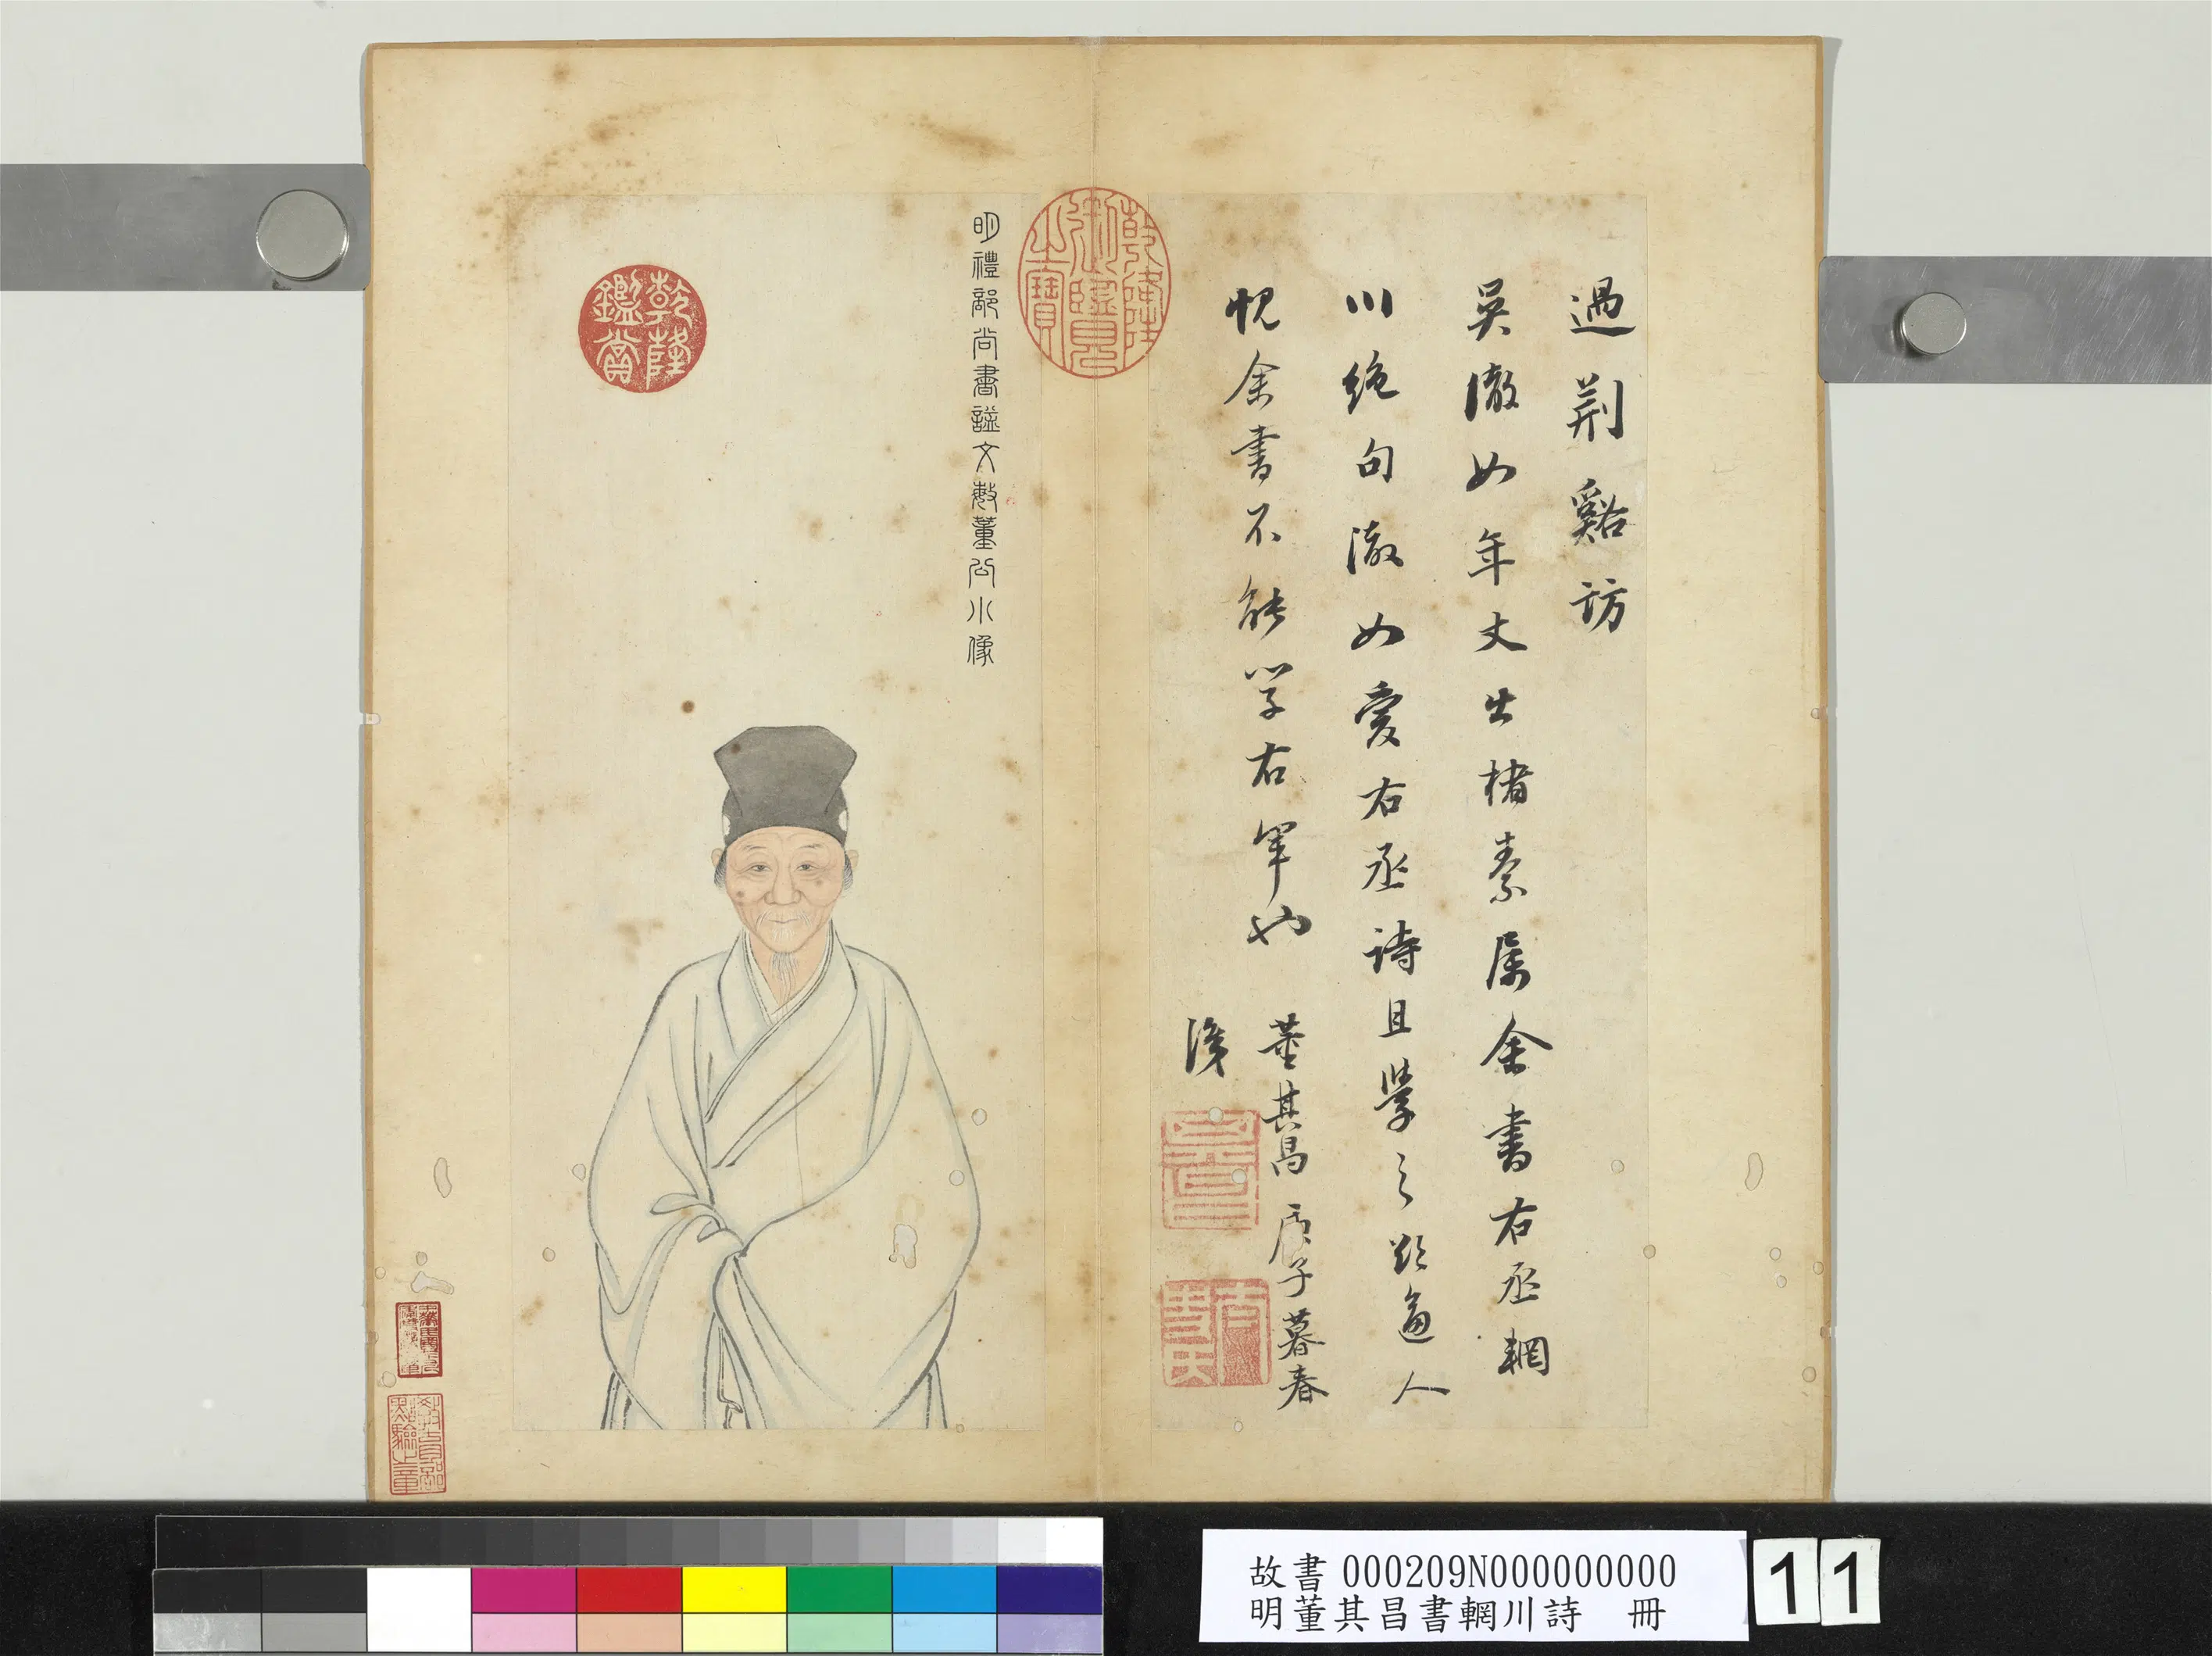 過荆谿訪
吳澈如年丈出楮素属余書右丞輞
川絶句澈如愛右丞詩且學之欵逼人
怳余書不能学右軍也
董其昌 庚子暮春
識
乾隆御覽之寶
明禮部尚書諡文敏董公小像
乾隆鑑賞
故書 000209N000000000
明董其昌書輞川詩 冊
11